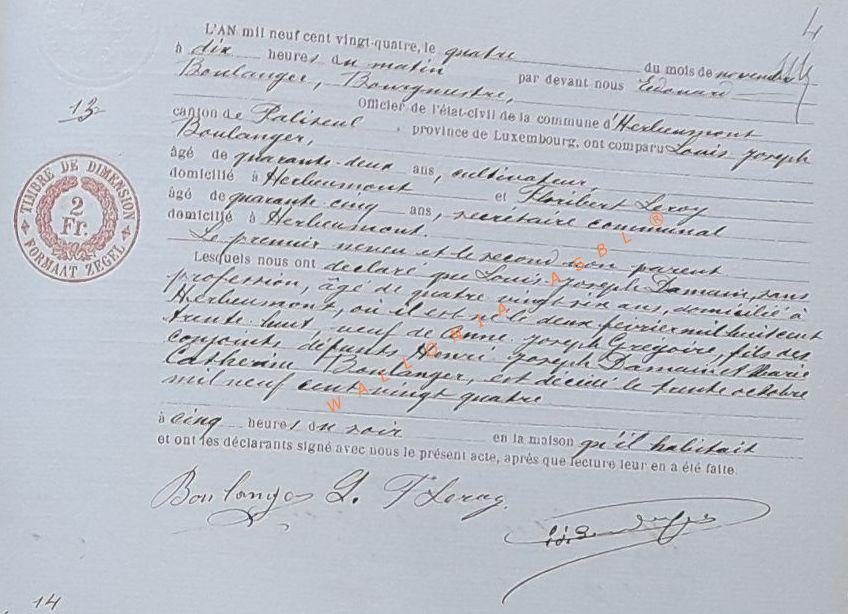 4
L'AN mil neuf cent vingt-quatre, le quatre du mois de novembre
à dix heures du matin par devant nous Edouard
Boulanger, Bourgmestre,
13
Officier de l'état-civil de la commune d'Herbeumont
canton de Paliseul, province de Luxembourg, ont comparu Louis Joseph
Boulanger,
âgé de quarante-deux ans, cultivateur,
domicilié à Herbeumont et Floribert Leroy
âgé de quarante cinq ans, secrétaire communal
domicilié à Herbeumont.
Le premier neveu et le second non parent
Lesquels nous ont déclaré que Louis Joseph Damain, sans
profession, âgé de quatre vingt six ans, domicilié à
Herbeumont, où il est né le deux février mil huit cent
trente huit, veuf de Anne Joseph Grégoire, fils des
conjoints défunts Henri Joseph Damain et Marie
Catherine Boulanger, est décédé le trente octobre
mil neuf cent vingt quatre
à cinq heures du soir en la maison qu'il habitait
et ont les déclarants signé avec nous le présent acte, après que lecture leur en a été faite.
Boulanger L. F Leroy.
14
TIMBRE DE DIMENSION
2
Fr.
FORMAAT ZEGEL
WALLONIA ASBL ®